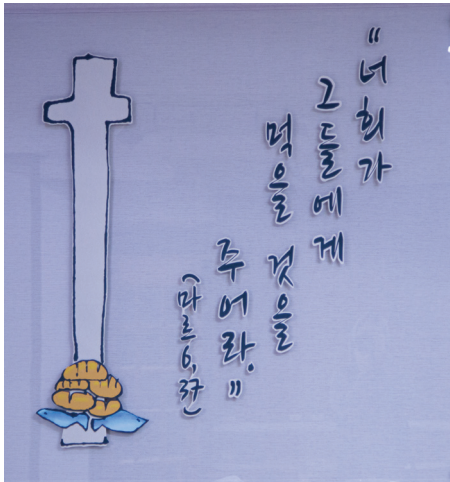 "너희가
그들에게
먹을 것을
주어라."
(마르 6,37)